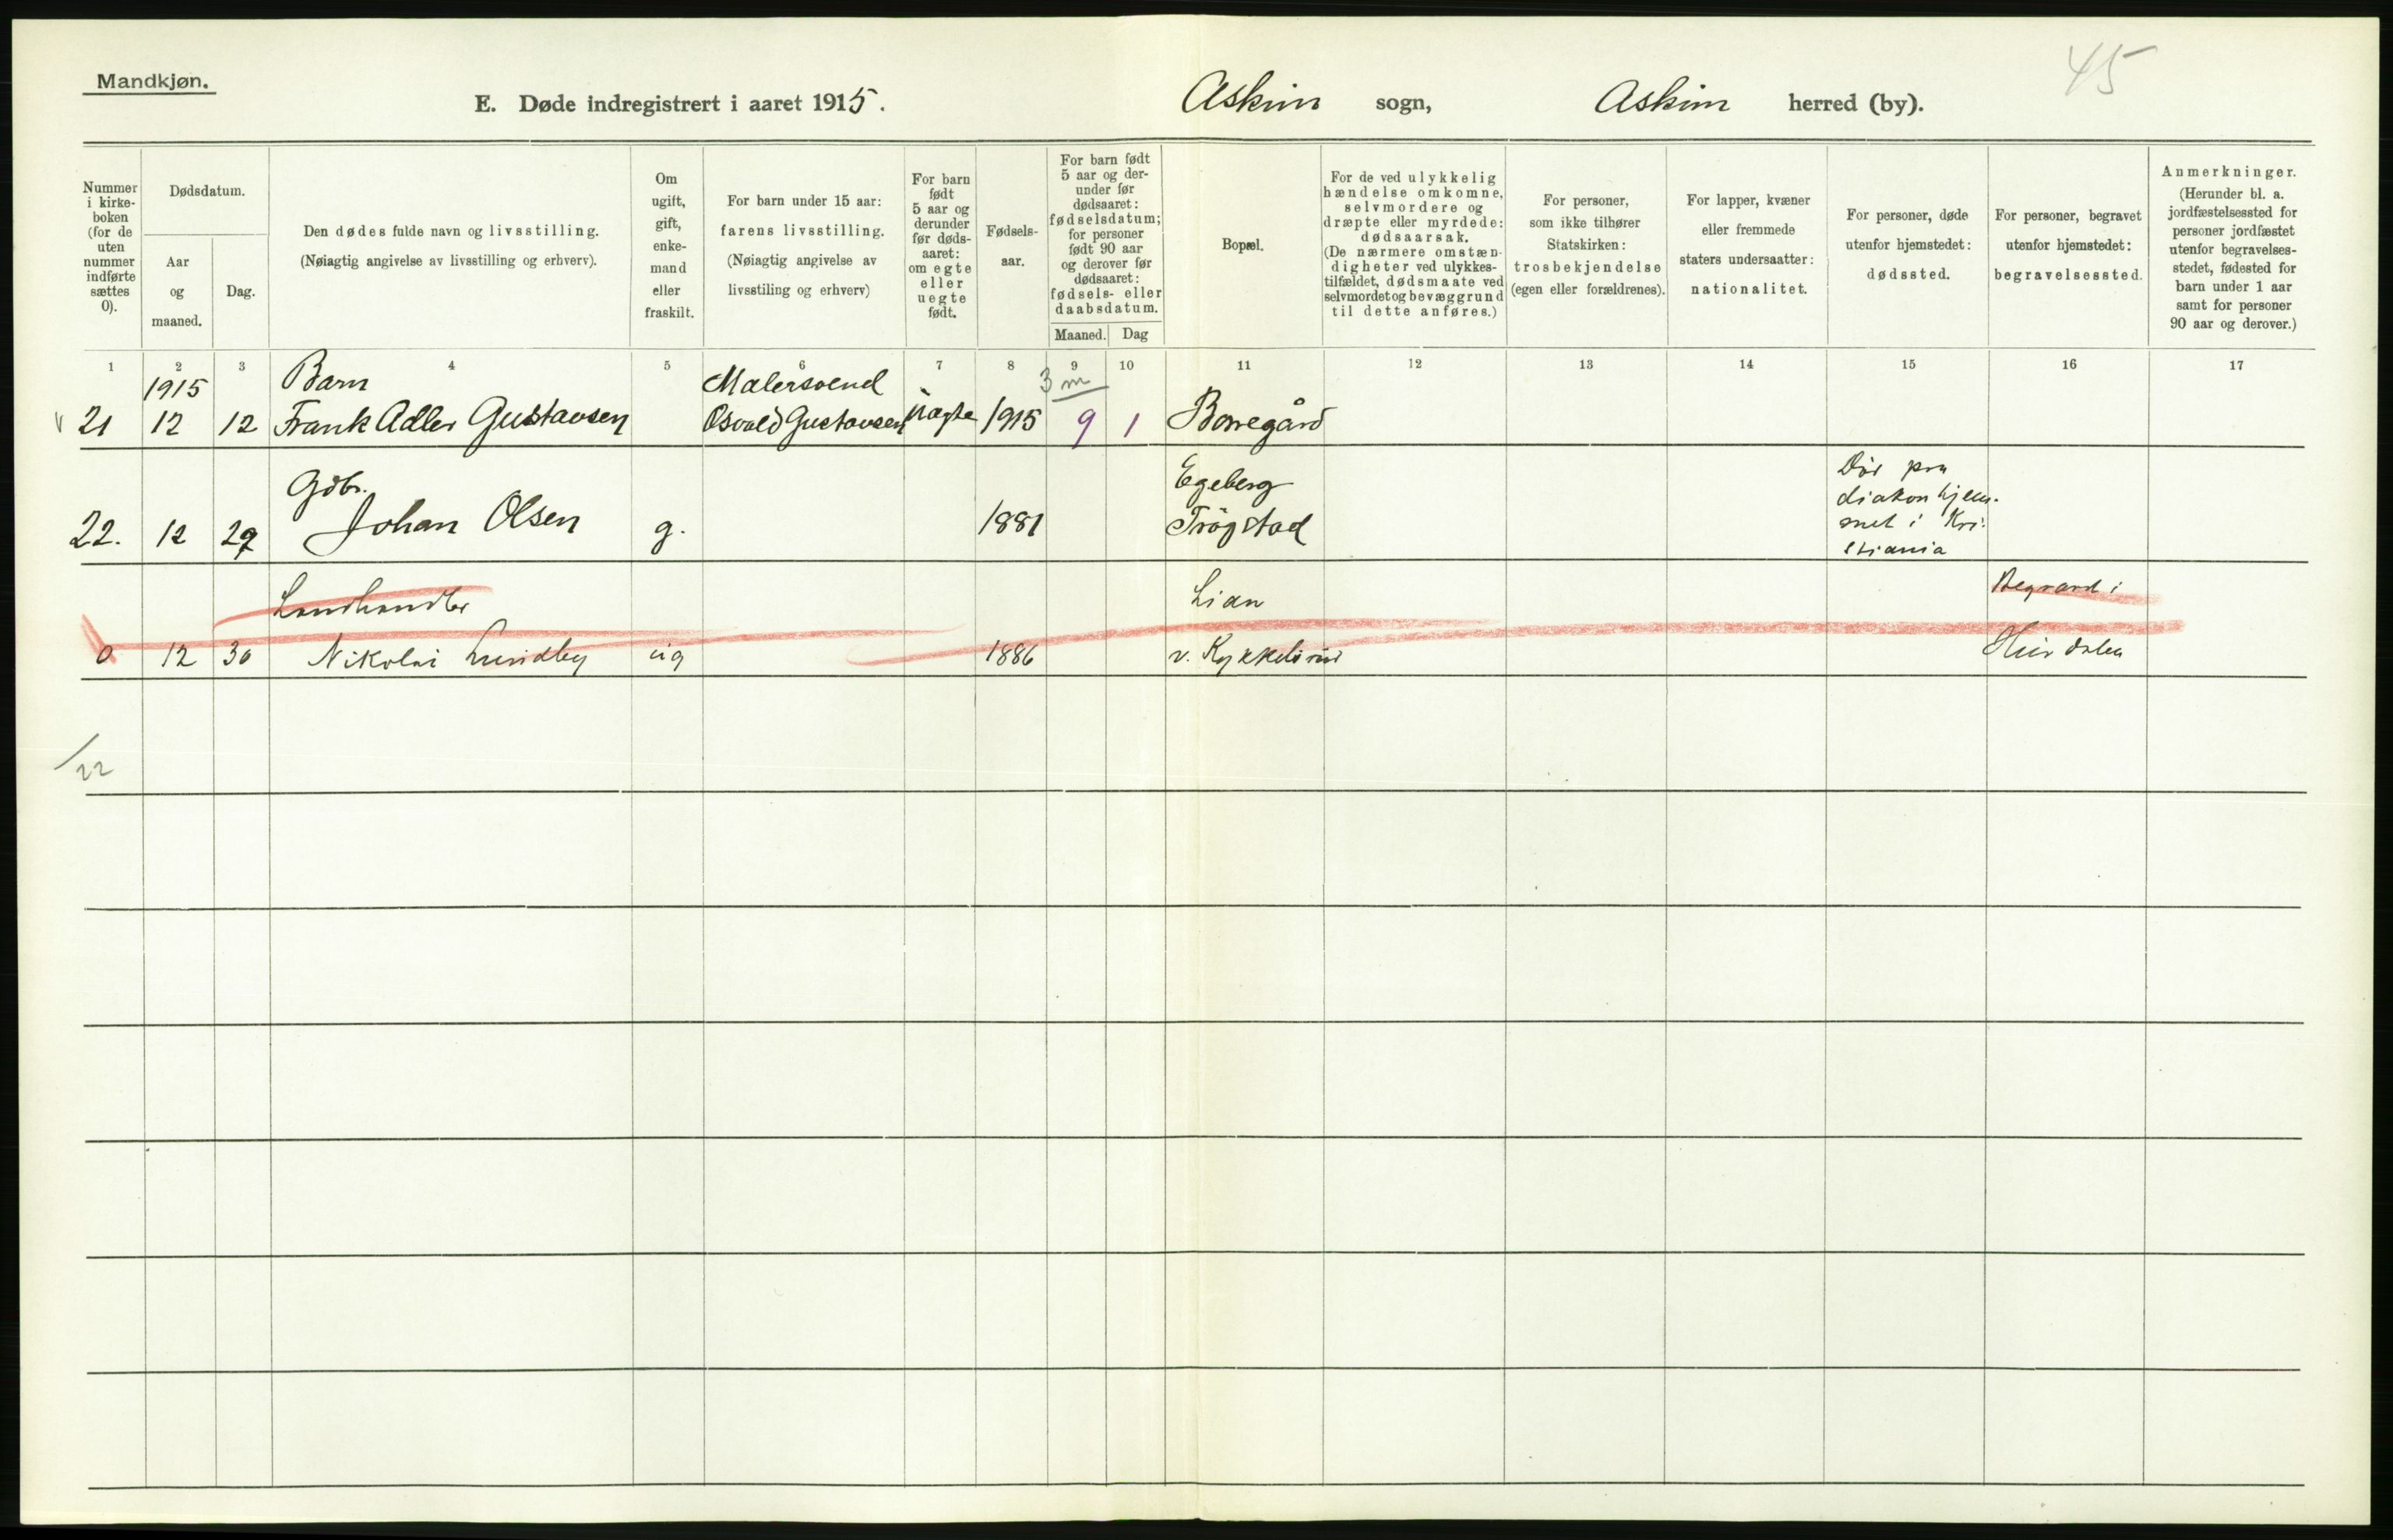 Mandkjøn.
45
E. Døde indregistrert i aaret 1915.
Askim sogn, Askim herred (by).
Nummer i kirke- boken (for de uten nummer indførte sættes 0).
Dødsdatum.
Aar og maaned.
Dag.
Den dødes fulde navn og livsstilling.
(Nøiagtig angivelse av livsstilling og erhverv).
Om ugift, gift, enke- mand eller fraskilt.
For barn under 15 aar: farens livsstilling.
(Nøiagtig angivelse av livsstiling og erhverv)
For barn født 5 aar og derunder før døds- aaret: om egte eller uegte født.
Fødsels- aar.
For barn født 5 aar og der- under før dødsaaret: fødselsdatum; for personer født 90 aar og derover før dødsaaret: fødsels- eller daabsdatum.
Maaned. Dag
Bopæl.
For de ved ulykkelig hændelse omkomne, selvmordere og dræpte eller myrdede: dødsaarsak.
(De nærmere omstæn- digheter ved ulykkes- tilfældet, dødsmaate ved selvmordet og bevæggrund til dette anføres.)
For personer, som ikke tilhører Statskirken: trosbekjendelse (egen eller forældrenes).
For lapper, kvæner eller fremmede staters undersaatter: nationalitet.
For personer, døde utenfor hjemstedet: dødssted.
For personer, begravet utenfor hjemstedet: begravelsessted.
Anmerkninger.
(Herunder bl. a. jordfæstelsessted for personer jordfæstet utenfor begravelses- stedet, fødested for barn under 1 aar samt for personer 90 aar og derover.)
1 2 3 4 5 6 7 8 9 10 11 12 13 14 15 16 17
1915 Barn Malersvend 3 m
21 12 12 Frank Adler Gustavsen Osvald Gustavsen uægte 1915 9 1 Borregård
Gdbr. Egeberg
22. 12 29 Johan Olsen g. 1881 Trøgstad
Død paa
diakonhjem-
met i Kri-
stiania
Landhandler Lian Begravd i
0 12 30 Nikolai Lundby ug 1886 v. Kykkelsrud
/22